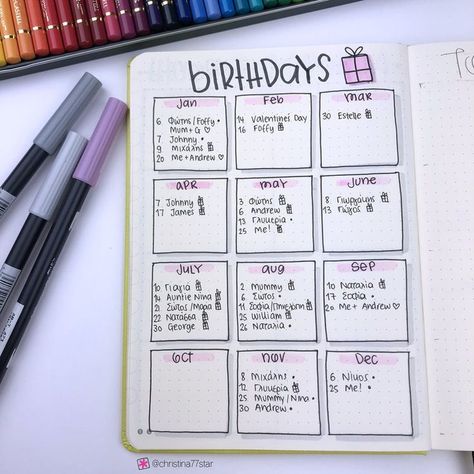 BIRTHDAYS
Jan
6 Φώτης/Foffy
Mum+G ♡
7 Johnny •
9 Μιχάλης
20 Me+Andrew ♡
Feb
14 Valentine's Day
16 Foffy
MAR
30 Estelle
APR
7 Johnny
17 James
MAY
3 Φώτης
6 Andrew
13 Γλυκερία •
25 Me!
JUNE
8 Γιωργάκης
13 Γιώργος
JULY
10 Γιαγιά
14 Auntie Nina
21 Σωτος/Μαρία
22 Νατάσσα
30 George
AUG
2 Mummy
6 Σωτος •
11 Σοφία/
25 William
26 Ναταλία •
SEP
10 Ναταλία
17 Σοφία •
20 Me + Andrew ♡
OCT
NOV
8 Μιχάλης •
12 Γλυκερία
25 Mummy/Nina •
30 Andrew •
DEC
6 Νίκος •
25 Me! •
@christina77star